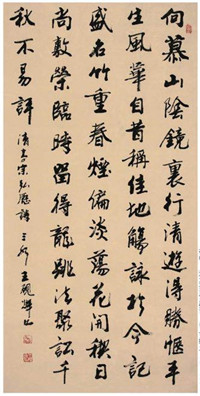 向慕山陰鏡裏行清遊得勝愜平
生風華自昔稱佳地觴詠於今記
盛名竹重春煙偏淡蕩花開禊日
尚敷榮臨時留得龍跳法聚訟千
秋不易評 清高宗弘曆詩